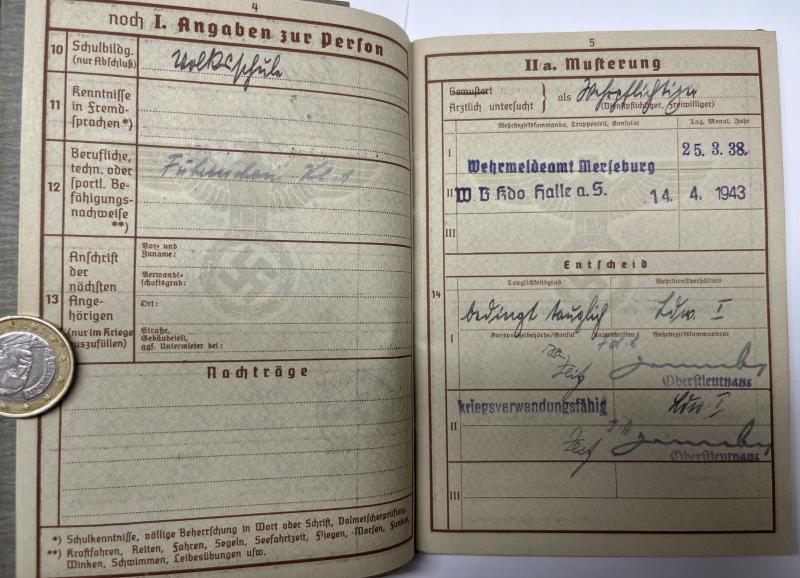 4
noch I. Angaben zur Person
10 Schulbildg. (nur Abschluß) Volksschule
11 Kenntnisse in Fremd-
sprachen *)
12 Berufliche,
techn. oder
sportl. Be-
fähigungs-
nachweise
**)
Führerschein Kl. 1
13 Anschrift
der
nächsten
Ange-
hörigen
(nur im Kriege
auszufüllen)
Vor- und
Zuname:
Verwandt-
schaftsgrad:
Ort:
Straße,
Gebäudeteil,
ggf. Untermieter bei:
Nachträge
*) Schulkenntnisse, völlige Beherrschung in Wort oder Schrift, Dolmetscherprüfung.
**) Kraftfahren, Reiten, Fahren, Segeln, Seefahrtzeit, Fliegen, Morsen, Funken,
Winken, Schwimmen, Leibesübungen usw.
5
II a. Musterung
Gemustert
Ärztlich untersucht } als Wehrpflichtiger
(Dienstpflichtiger, Freiwilliger)
Wehrbezirkskommando, Truppenteil, Konsulat Tag, Monat, Jahr
I Wehrmeldeamt Merseburg 25. 3. 38.
II W B Kdo Halle a. S. 14. 4. 1943
III
14
Entscheid
Tauglichkeitsgrad Wehrdienstverhältnis
I bedingt tauglich Ldw. I
Kreispolizeibehörde/Konsul Unterschriften Wehrbezirkskommandeur
Oberstleutnant
II kriegsverwendungsfähig Ldw I
Oberstleutnant
III